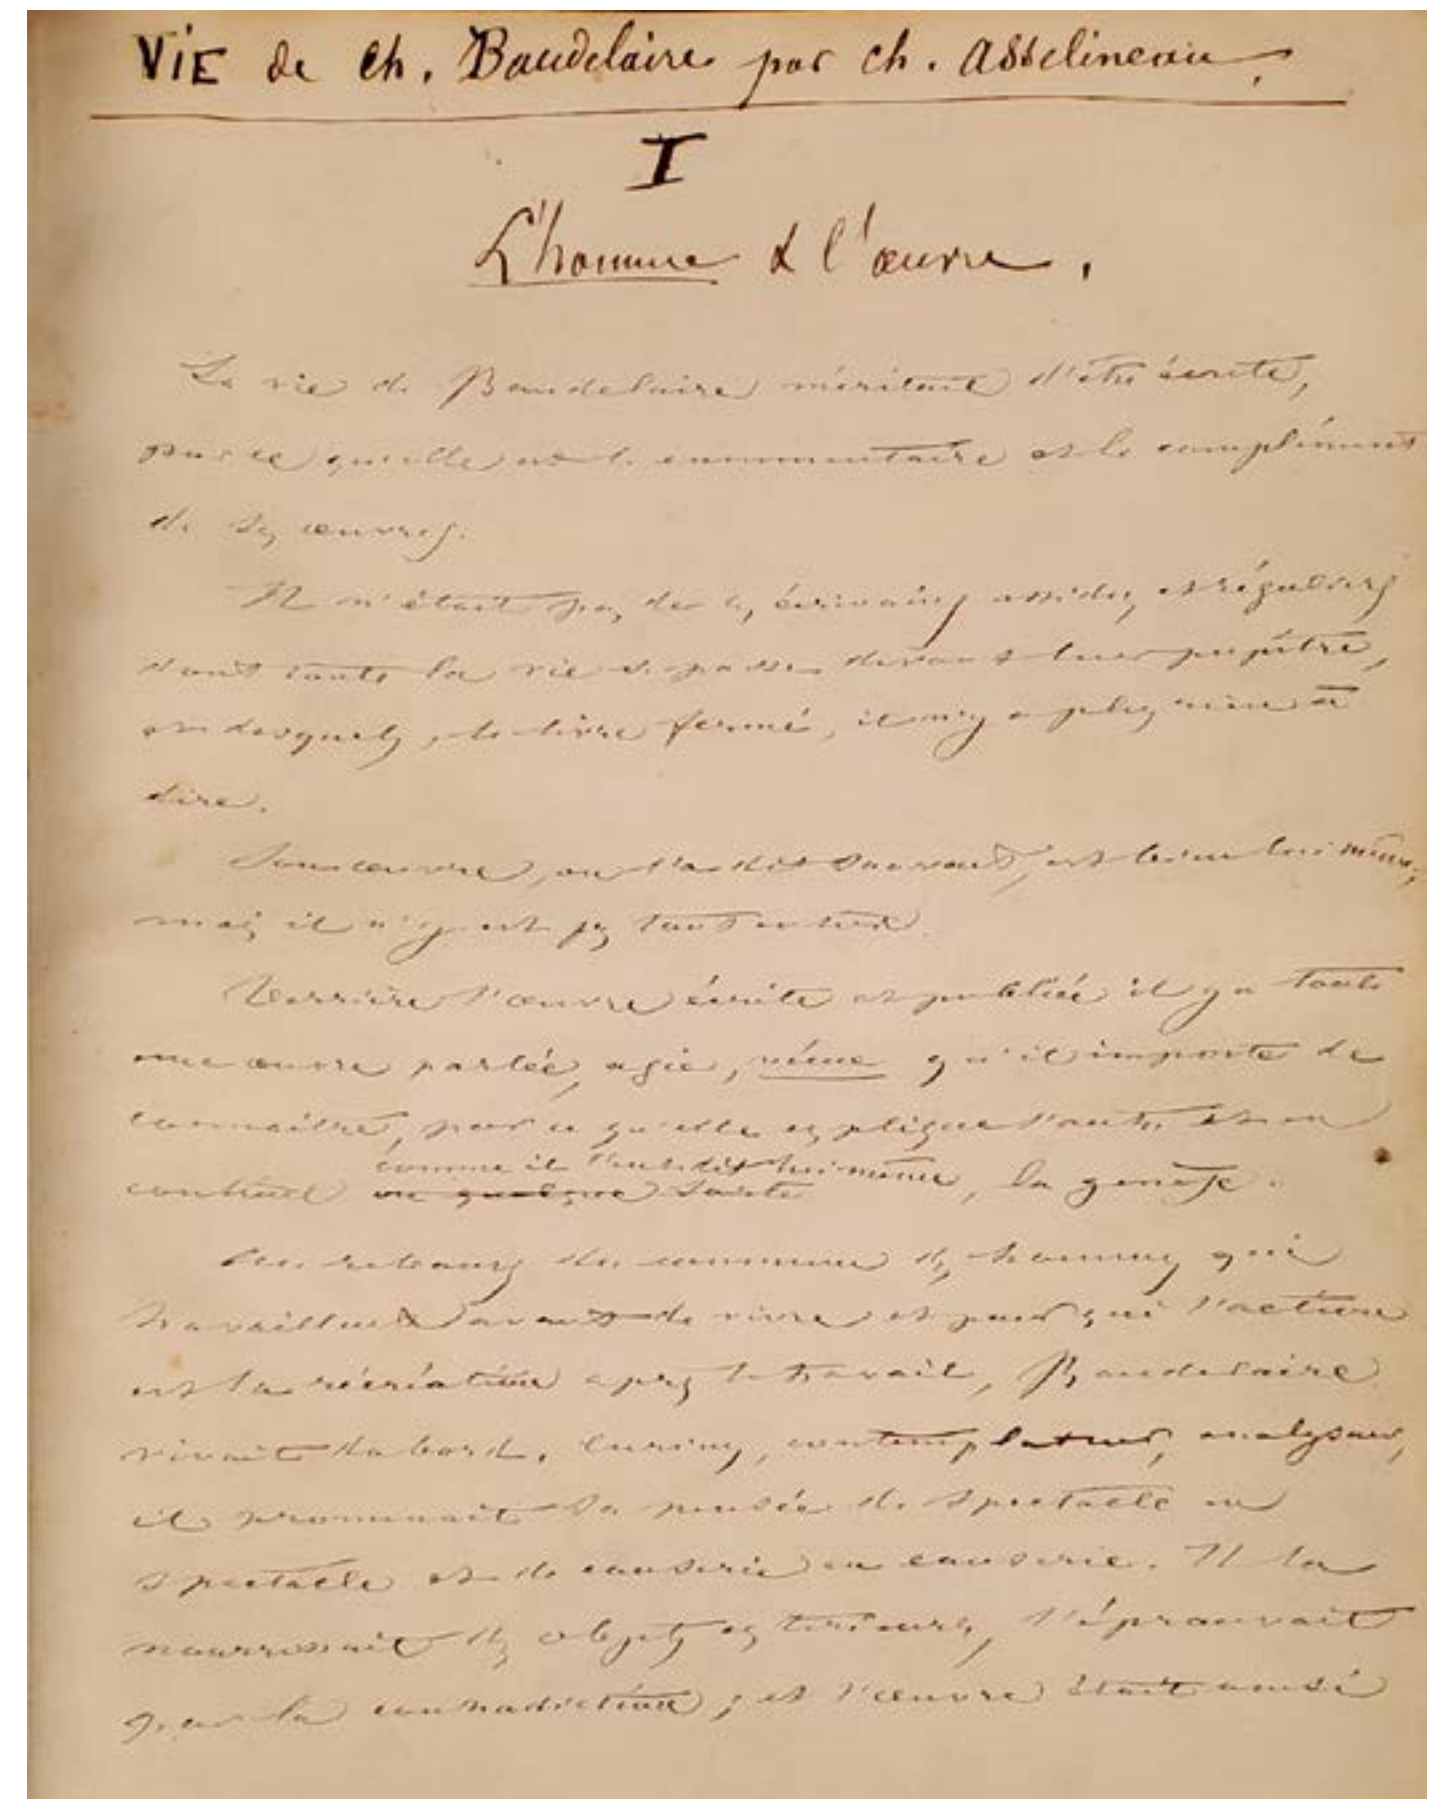 VIE de Ch. Baudelaire par Ch. Asselineau.
I
L'homme & l'œuvre.
La vie de Baudelaire méritait d'être écrite,
parce qu'elle est le commentaire et le complément
de ses œuvres.
Il n'était pas de ces écrivains assidus et réguliers
dont toute la vie se passe devant leur pupitre,
et desquels, le livre fermé, il n'y a plus rien à
dire.
Son œuvre, on l'a dit souvent, est bien lui même,
mais il n'y est pas tout entier.
Derrière l'œuvre écrite et publiée il y a toute
une œuvre parlée, agie, vécue qu'il importe de
connaître, parce qu'elle explique l'autre et en
comme il l'eut dit lui même
contient en quelque sorte, la genèse.
Au rebours du commun des hommes qui
travaillent avant de vivre et pour qui l'action
est la récréation après le travail, Baudelaire
vivait d'abord. Curieux, contemplateur, analyseur,
il promenait sa pensée de spectacle en
spectacle et de causerie en causerie. Il la
nourrissait des objets extérieurs, l'éprouvait
par la contradiction ; et l'œuvre était ainsi